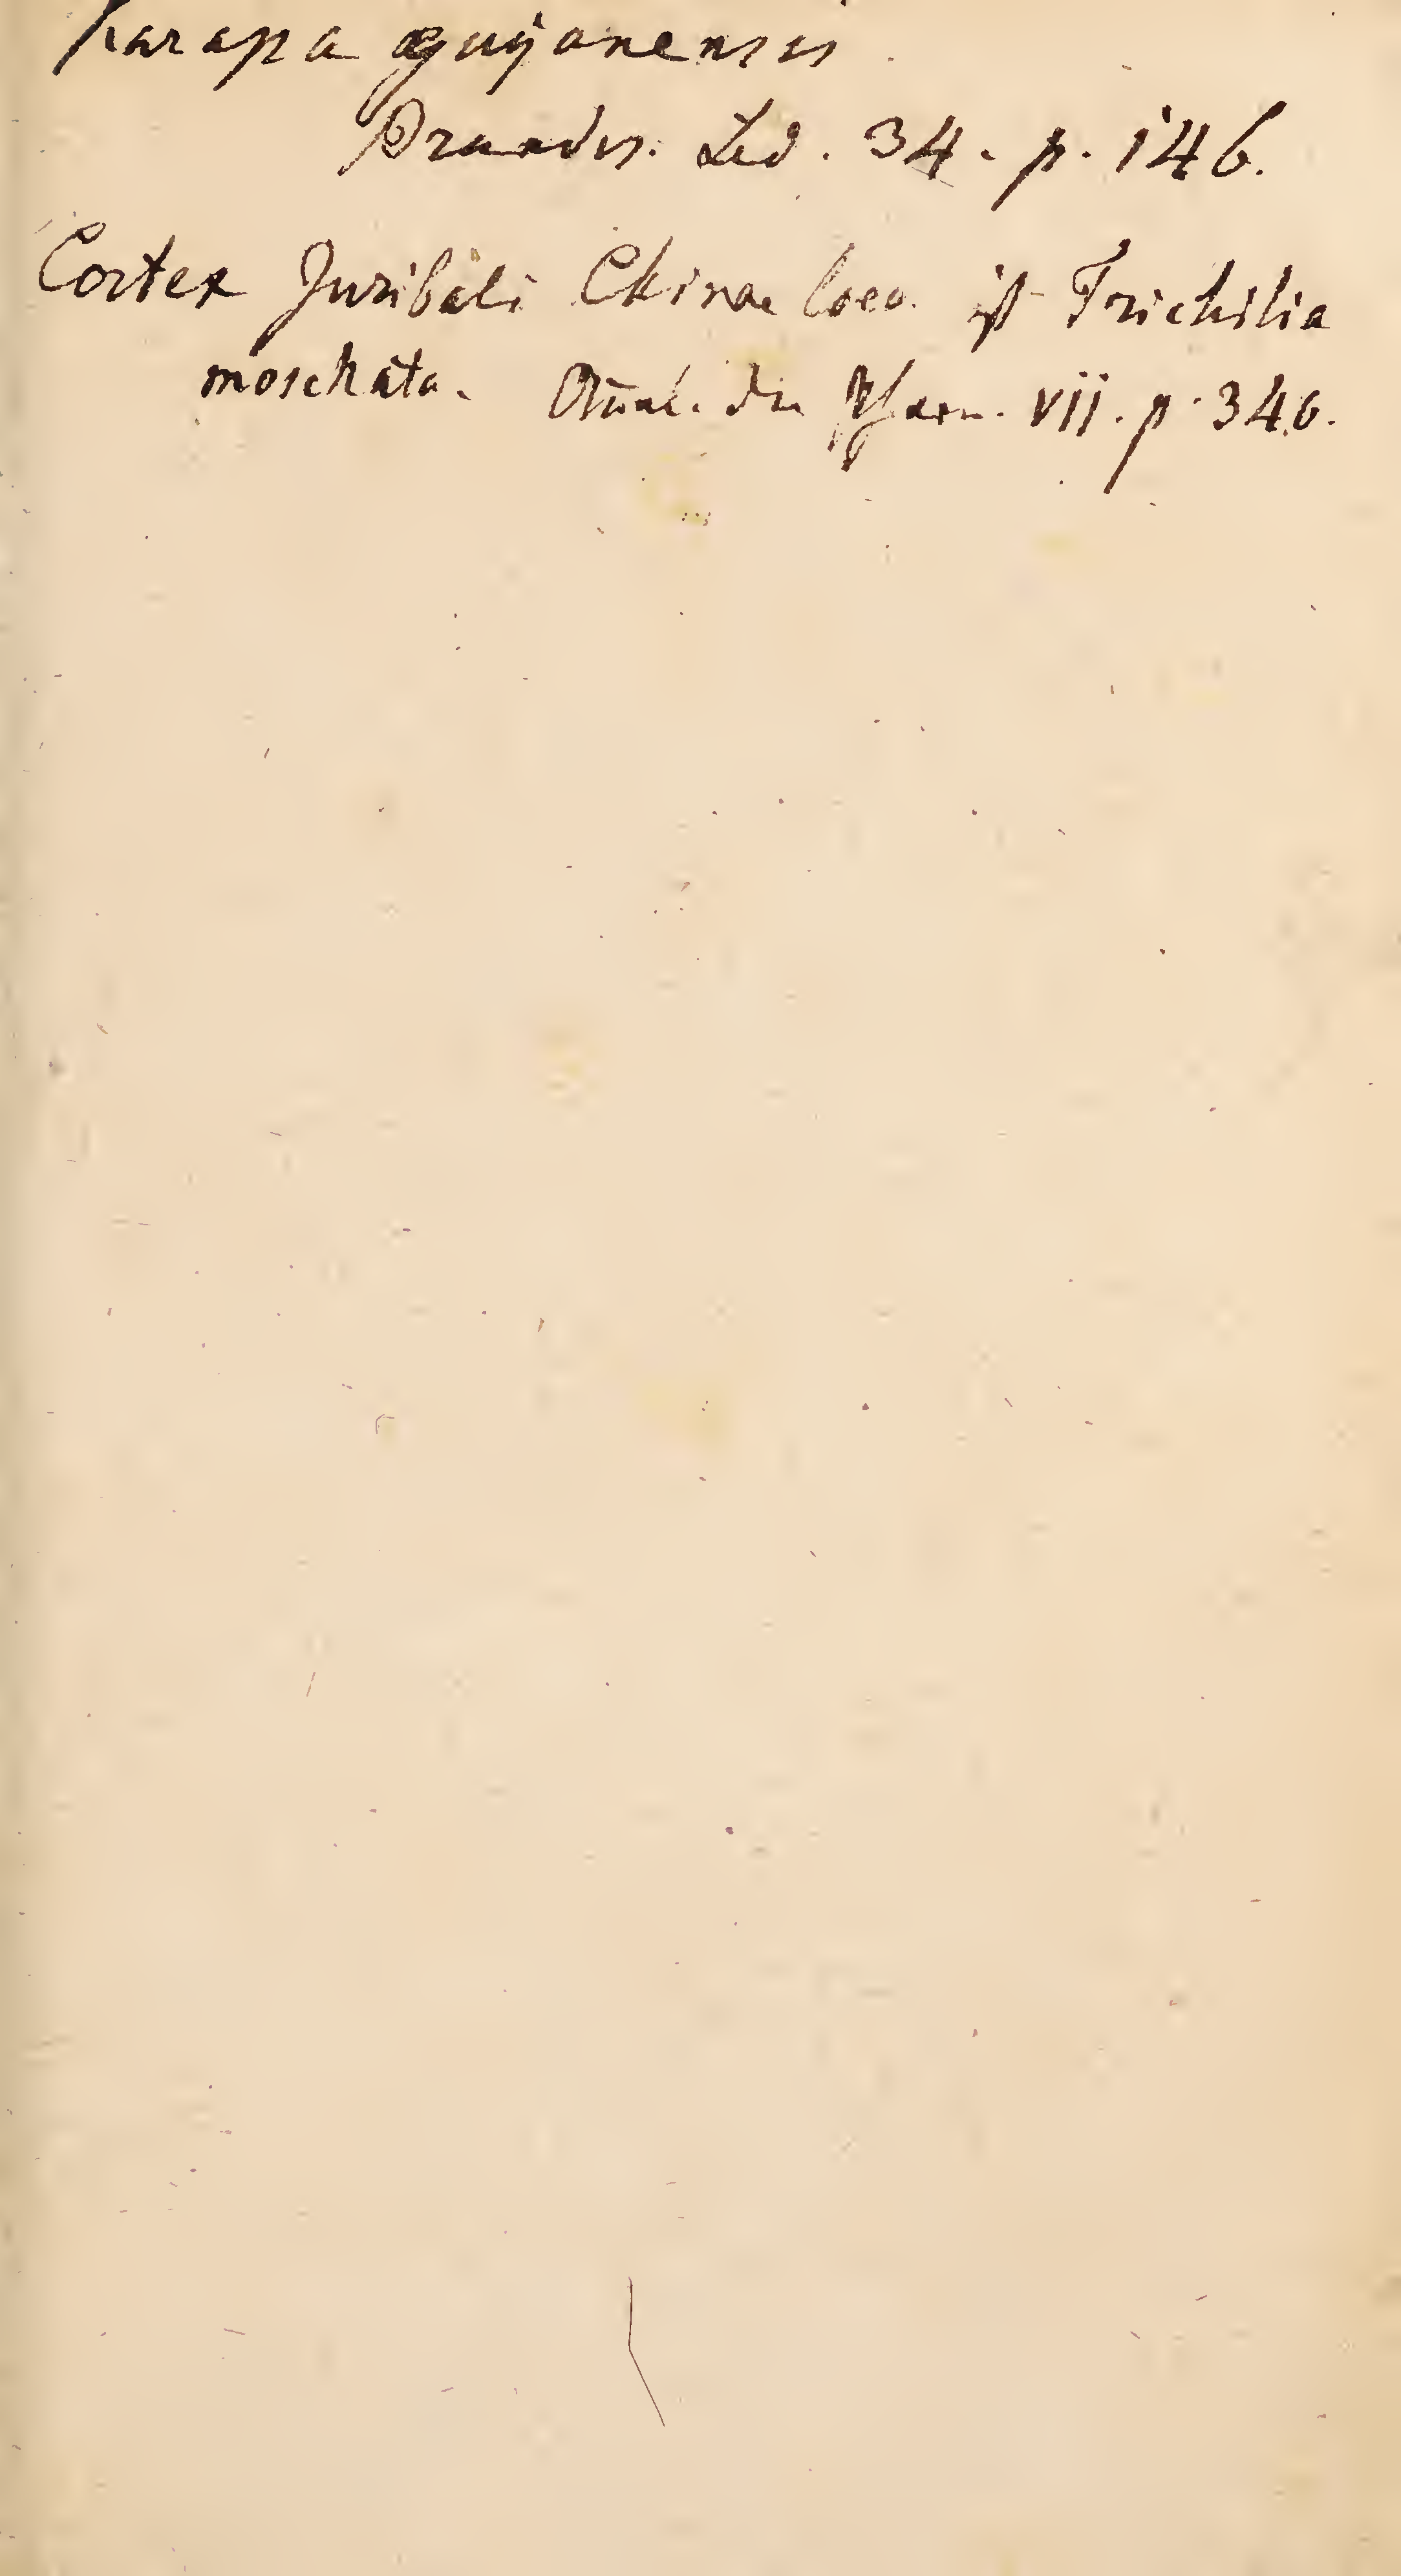 Karapa guÿanensis
Brandes. 34. p. 146.
Cortex Juribali Chinae loco. ist Trichilia
moschata. der Pharm. VII. p. 346.